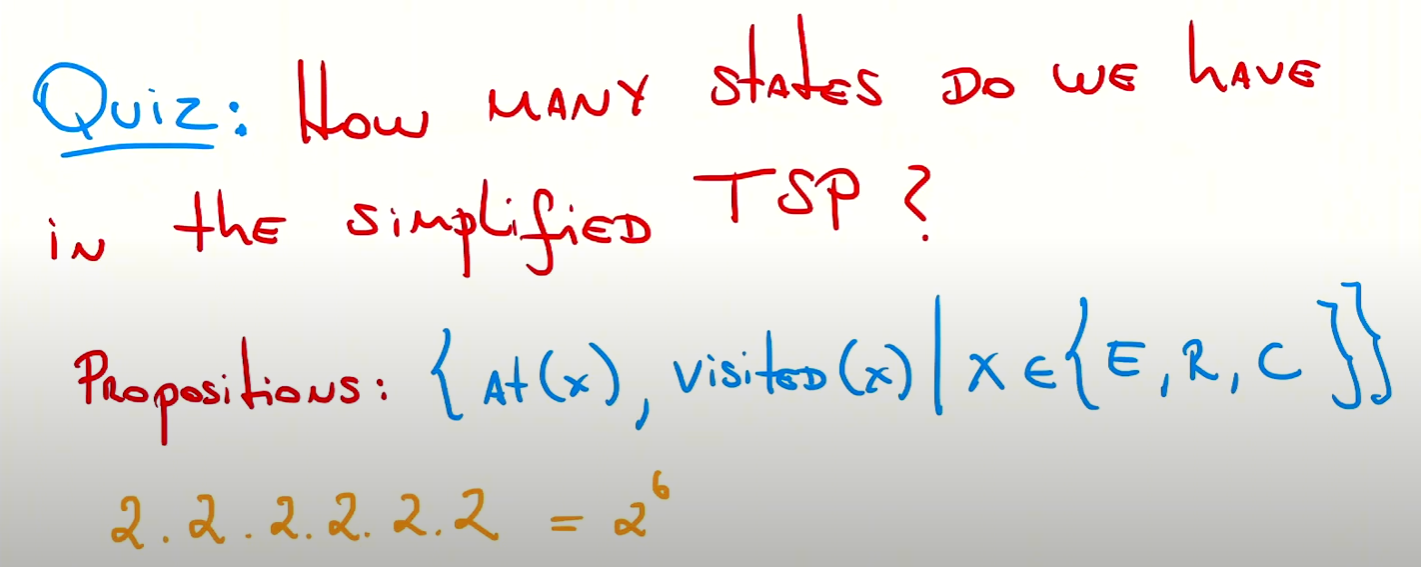 Quiz: How MANY states Do we have
in the simplified TSP?
Propositions: {At(x), visited(x) | x ∈ {E, R, C}}
2.2.2.2.2.2 = 2⁶